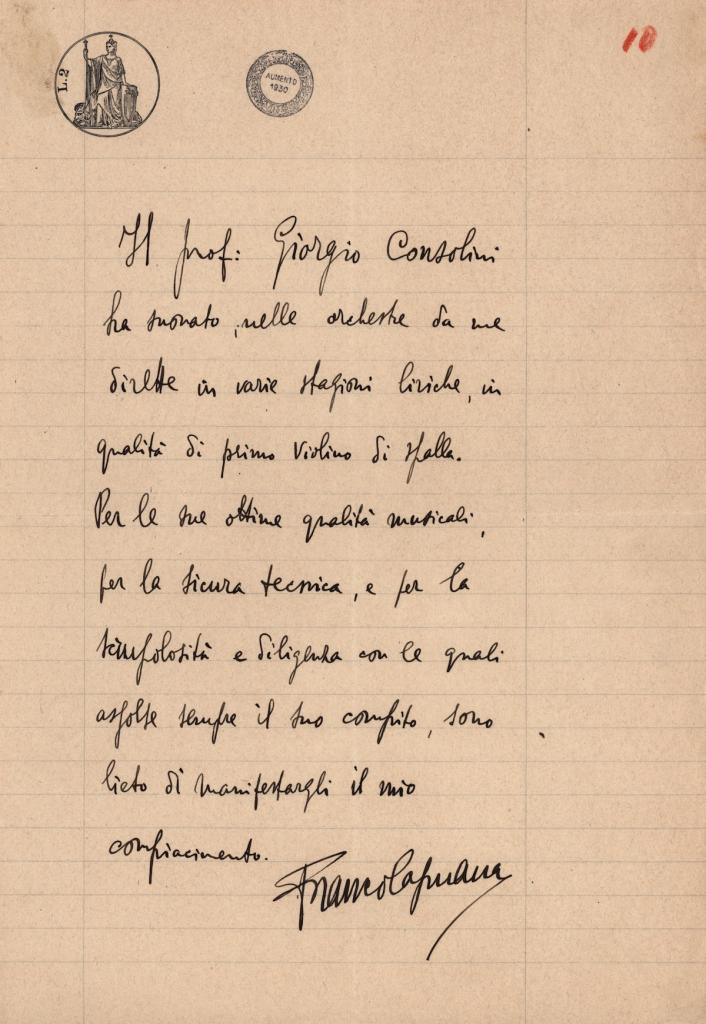 10
L. 2
AUMENTO
1930
Il prof: Giorgio Consolini
ha suonato, nelle orchestre da me
dirette in varie stagioni liriche, in
qualità di primo violino di spalla.
Per le sue ottime qualità musicali,
per la sicura tecnica, e per la
scrupolosità e diligenza con le quali
assolse sempre il suo compito, sono
lieto di manifestargli il mio
compiacimento.
Franco Capuana